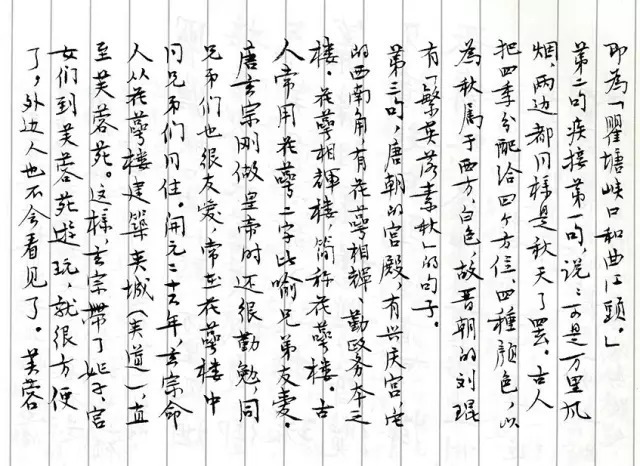 即为「瞿塘峡口和曲江頭。」
第二句疾接第一句，说：可是万里风
烟，两边都同样是秋天了罢。古人
把四季分配给四个方位，四種颜色，以
為秋属于西方，白色，故晋朝的刘琨
有「繁英落素秋」的句子。
第三句，唐朝的宫殿，有兴庆宫。宅
的西南角，有花萼相輝、勤政务本之
楼。花萼相輝楼，简称花萼楼。古
人常用花萼二字比喻兄弟友爱。
唐玄宗刚做皇帝时还很勤勉，同
兄弟们也很友爱，常在花萼楼中
同兄弟们同住。開元二十六年，玄宗命
人从花萼楼建築夹城（夹道），直
至芙蓉苑。这样，玄宗带了妃子、宫
女们到芙蓉苑遊玩，就很方便
了，外边人也不会看见了。芙蓉